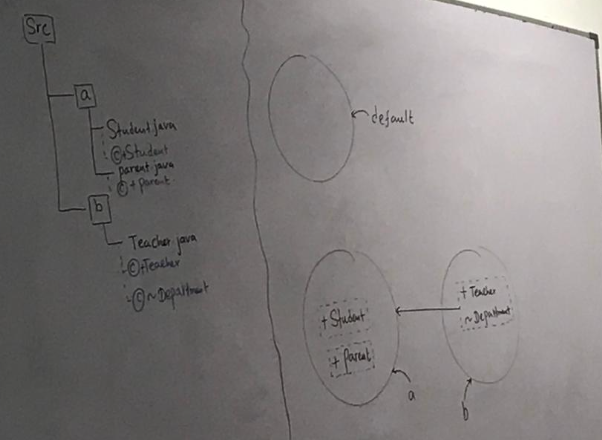 Src
a
Student.java
C +Student
parent.java
C + parent
b
Teacher.java
C +Teacher
C ~Department
default
+ Student
+ Parent
a
+ Teacher
~Department
b